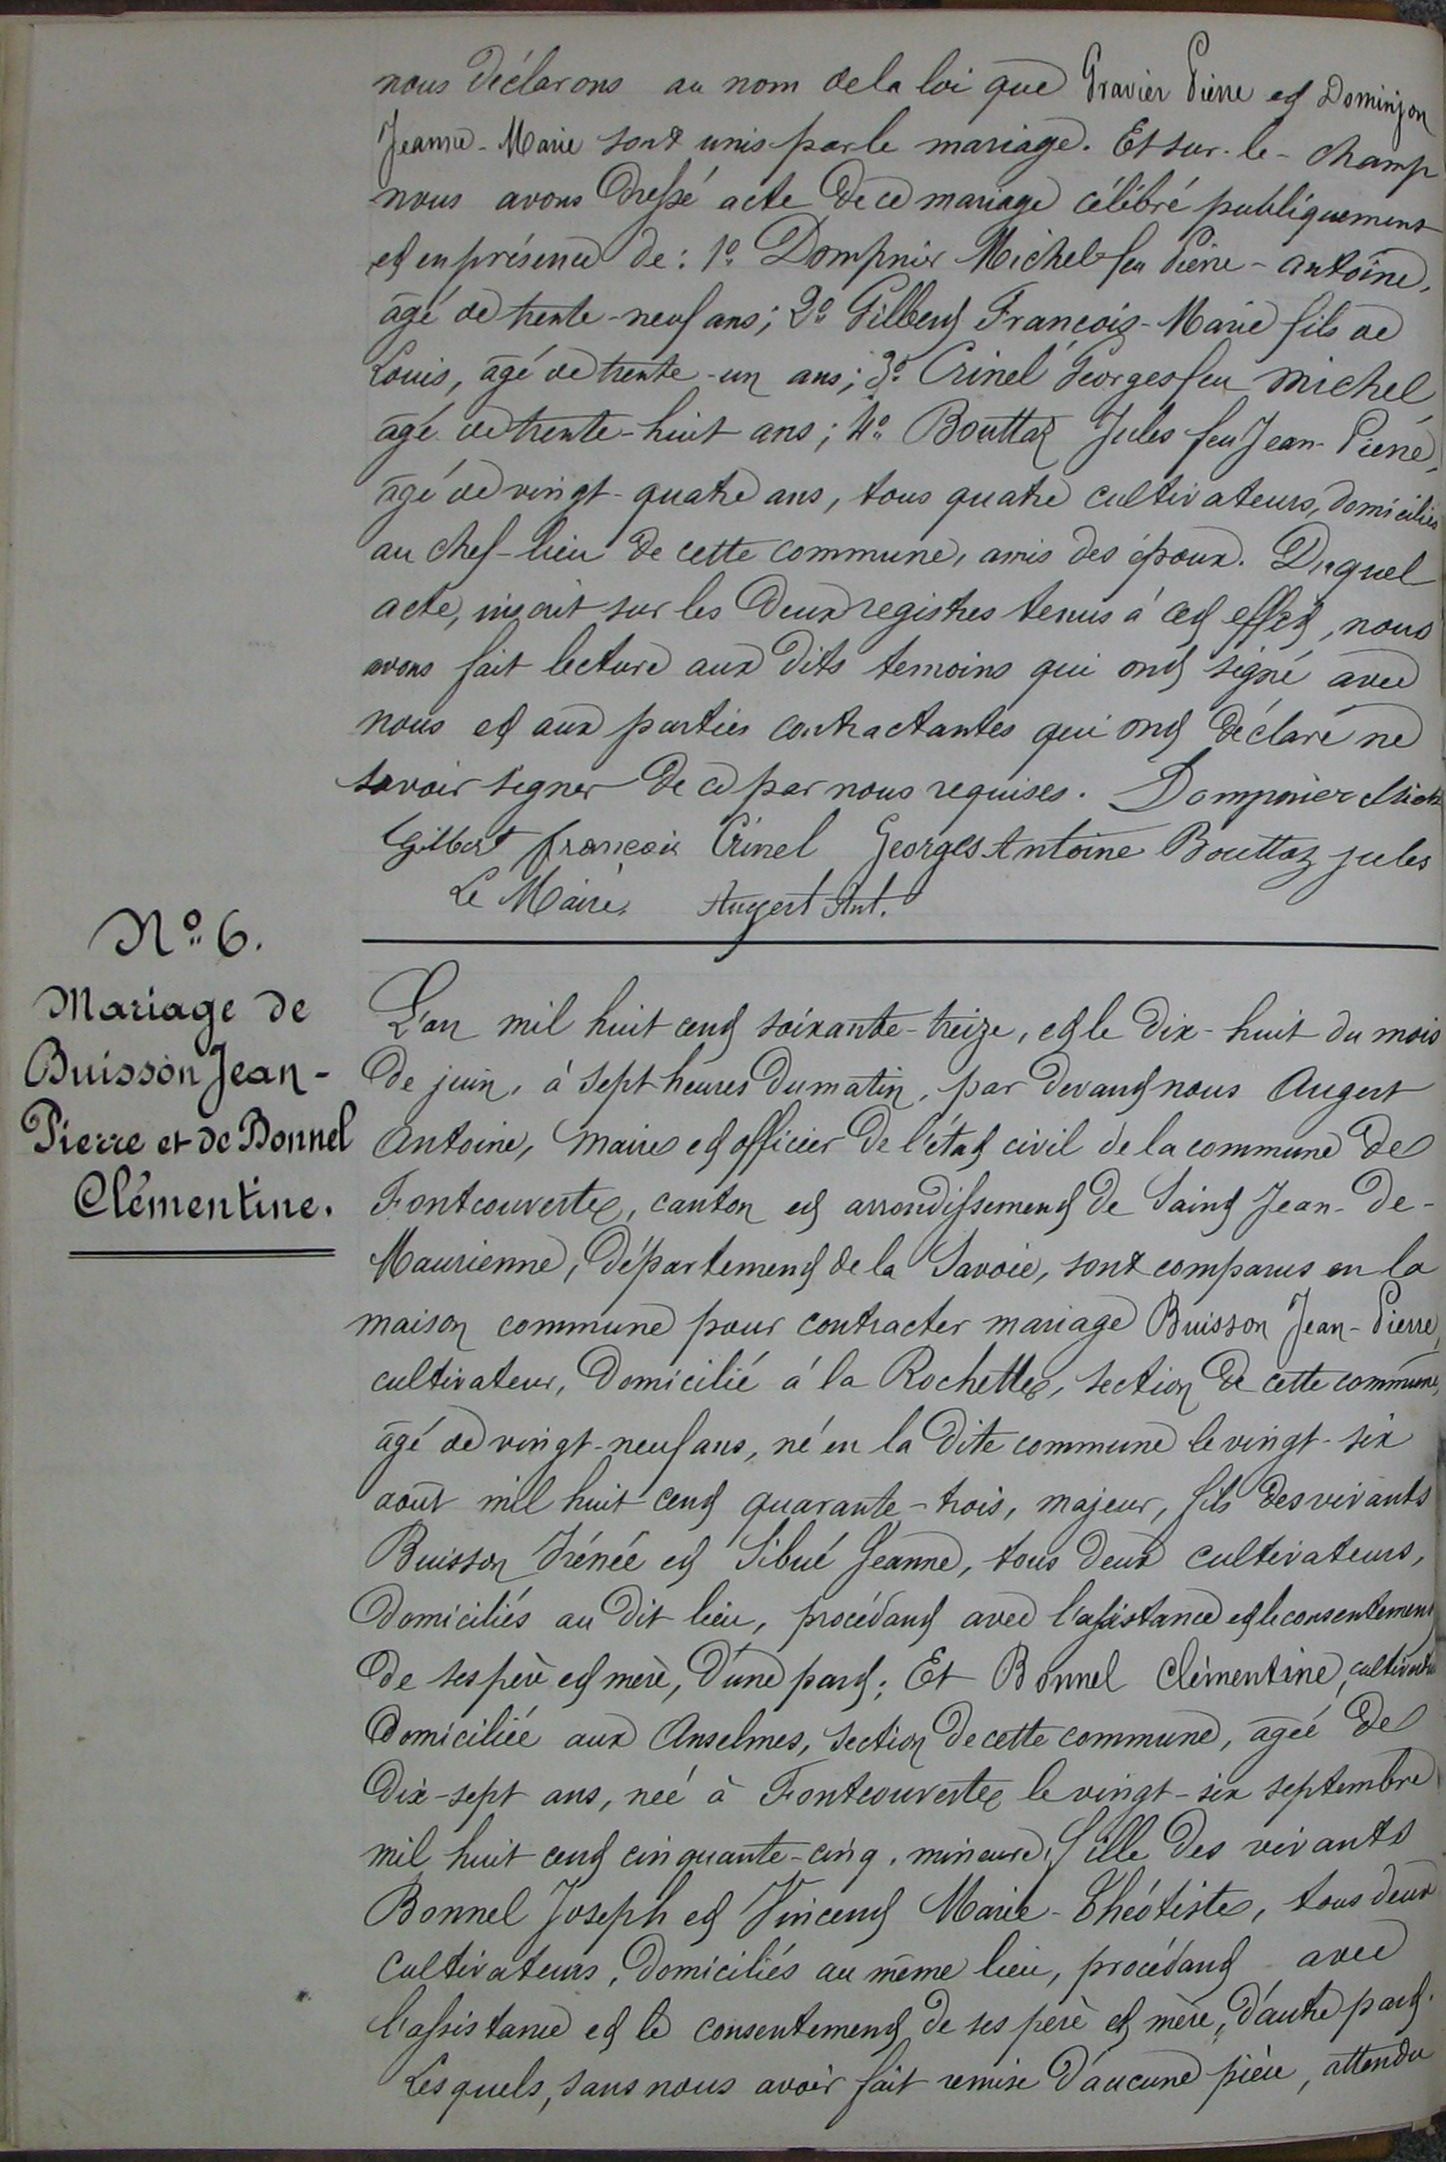 nous déclarons au nom de la loi que Gravier Pierre et Dominjon
Jeanne-Marie sont unis par le mariage. Et sur-le-champ
nous avons dressé acte de ce mariage célébré publiquement
et en présence de : 1º Dompnier Michel feu Pierre-Antoine,
âgé de trente-neuf ans ; 2º Gilbert François-Marie fils de
Louis, âgé de trente-un ans ; 3º Crinel Georges feu Michel,
âgé de trente-huit ans ; 4º Bouttaz Jules feu Jean-Pierre,
âgé de vingt-quatre ans, tous quatre cultivateurs, domiciliés
au chef-lieu de cette commune, amis des époux. Duquel
acte, inscrit sur les deux registres tenus à cet effet, nous
avons fait lecture aux dits temoins qui ont signé avec
nous et aux parties contractantes qui ont déclaré ne
savoir signer de ce par nous requises. Dompnier
Gilbert françois Crinel Georges Antoine Bouttaz jules
Le Maire, Augert Ant.
Nº 6.
Mariage de
Buisson Jean-
Pierre et de Bonnel
Clémentine.
L'an mil huit cent soixante-treize, et le dix-huit du mois
de juin, à sept heures du matin, par devant nous Augert
Antoine, Maire et officier de l'état civil de la commune de
Fontcouverte, canton et arrondissement de Saint Jean-de-
Maurienne, département de la Savoie, sont comparus en la
maison commune pour contracter mariage Buisson Jean-Pierre,
cultivateur, domicilié à la Rochette, section de cette commune,
âgé de vingt-neuf ans, né en la dite commune le vingt-six
août mil huit cent quarante-trois, majeur, fils des vivants
Buisson Irénée et Sibué Jeanne, tous deux cultivateurs,
domiciliés au dit lieu, procédant avec l'assistance et le consentement
de ses père et mère, d'une part ; Et Bonnel Clémentine, cultivatrice
domiciliée aux Anselmes, section de cette commune, agée de
dix-sept ans, née à Fontcouverte le vingt-six septembre
mil huit cent cinquante-cinq, mineure, fille des vivants
Bonnel Joseph et Vincent Marie-Théotiste, tous deux
cultivateurs, domiciliés au même lieu, procédant avec
l'assistance et le consentement de ses père et mère, d'autre part.
Lesquels, sans nous avoir fait remise d'aucune pièce, attendu